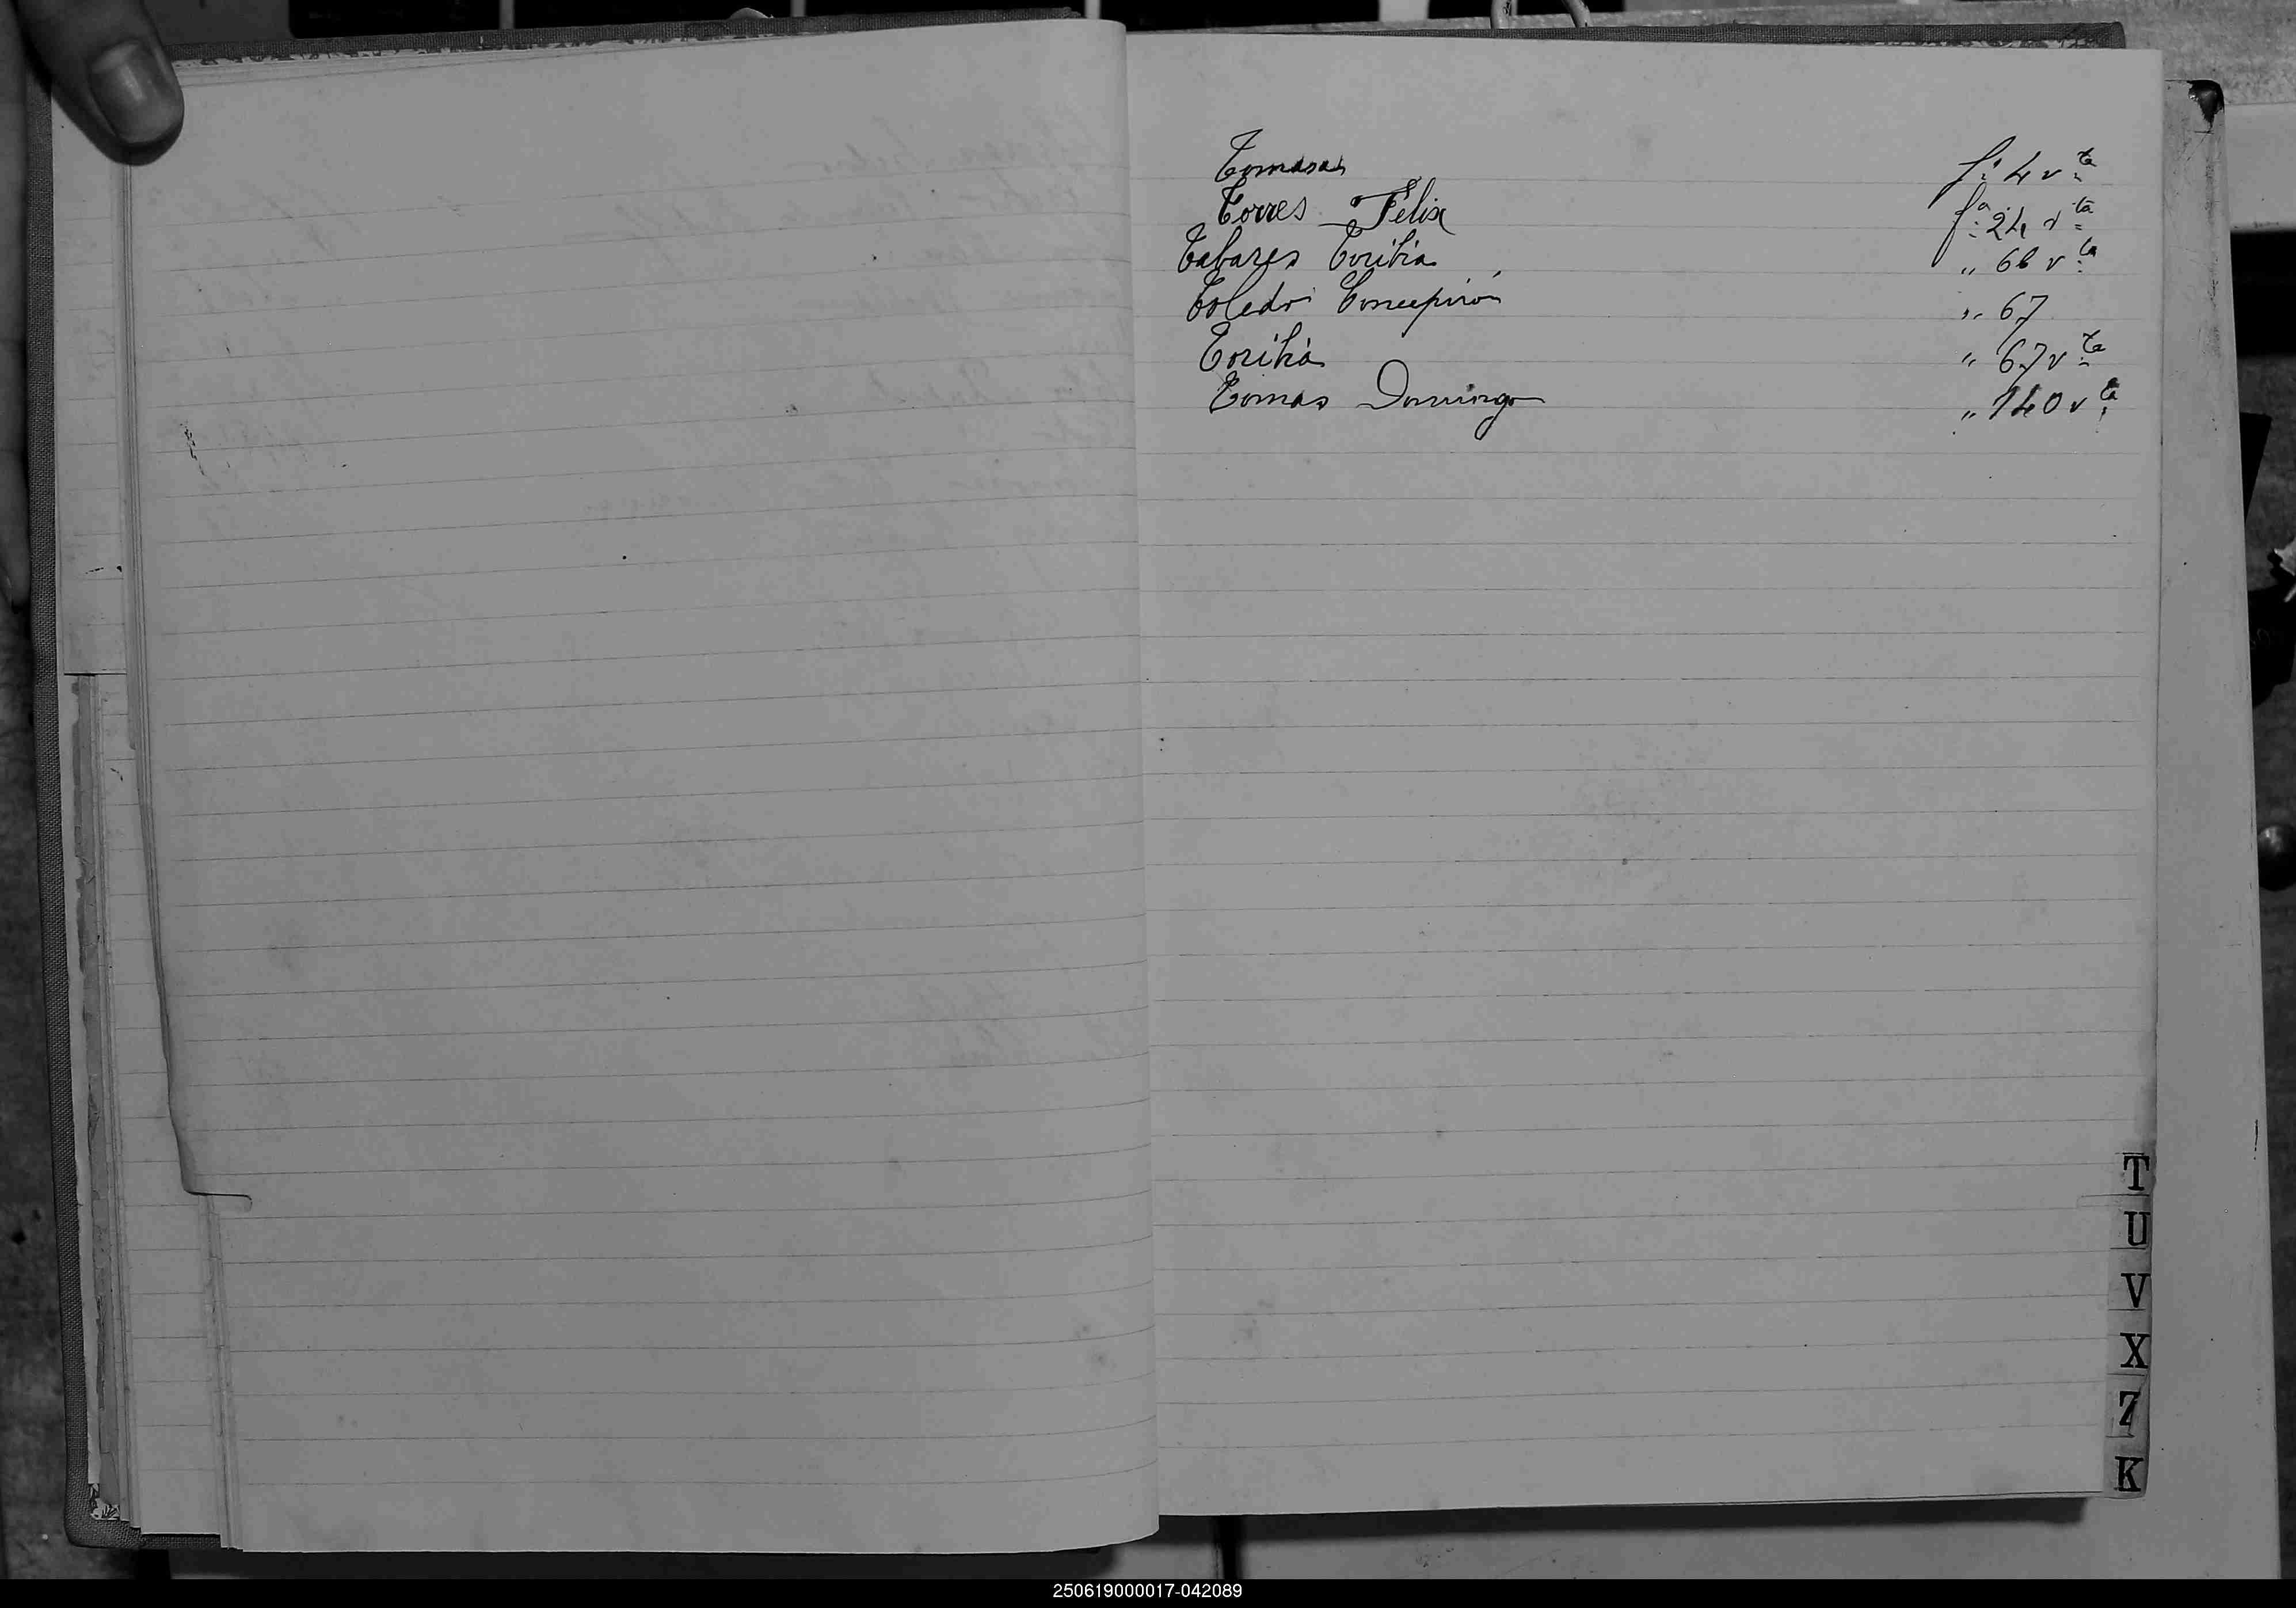 Tomasa f.º 4 v.ta
Torres Felix f.º 24 v.ta
Tabares Toribia „ 66 v.ta
Toledo Concepción „ 67
Toribia „ 67 v.ta
Tomas Domingo „ 140 v.ta
T
U
V
X
Z
K
250619000017-042089